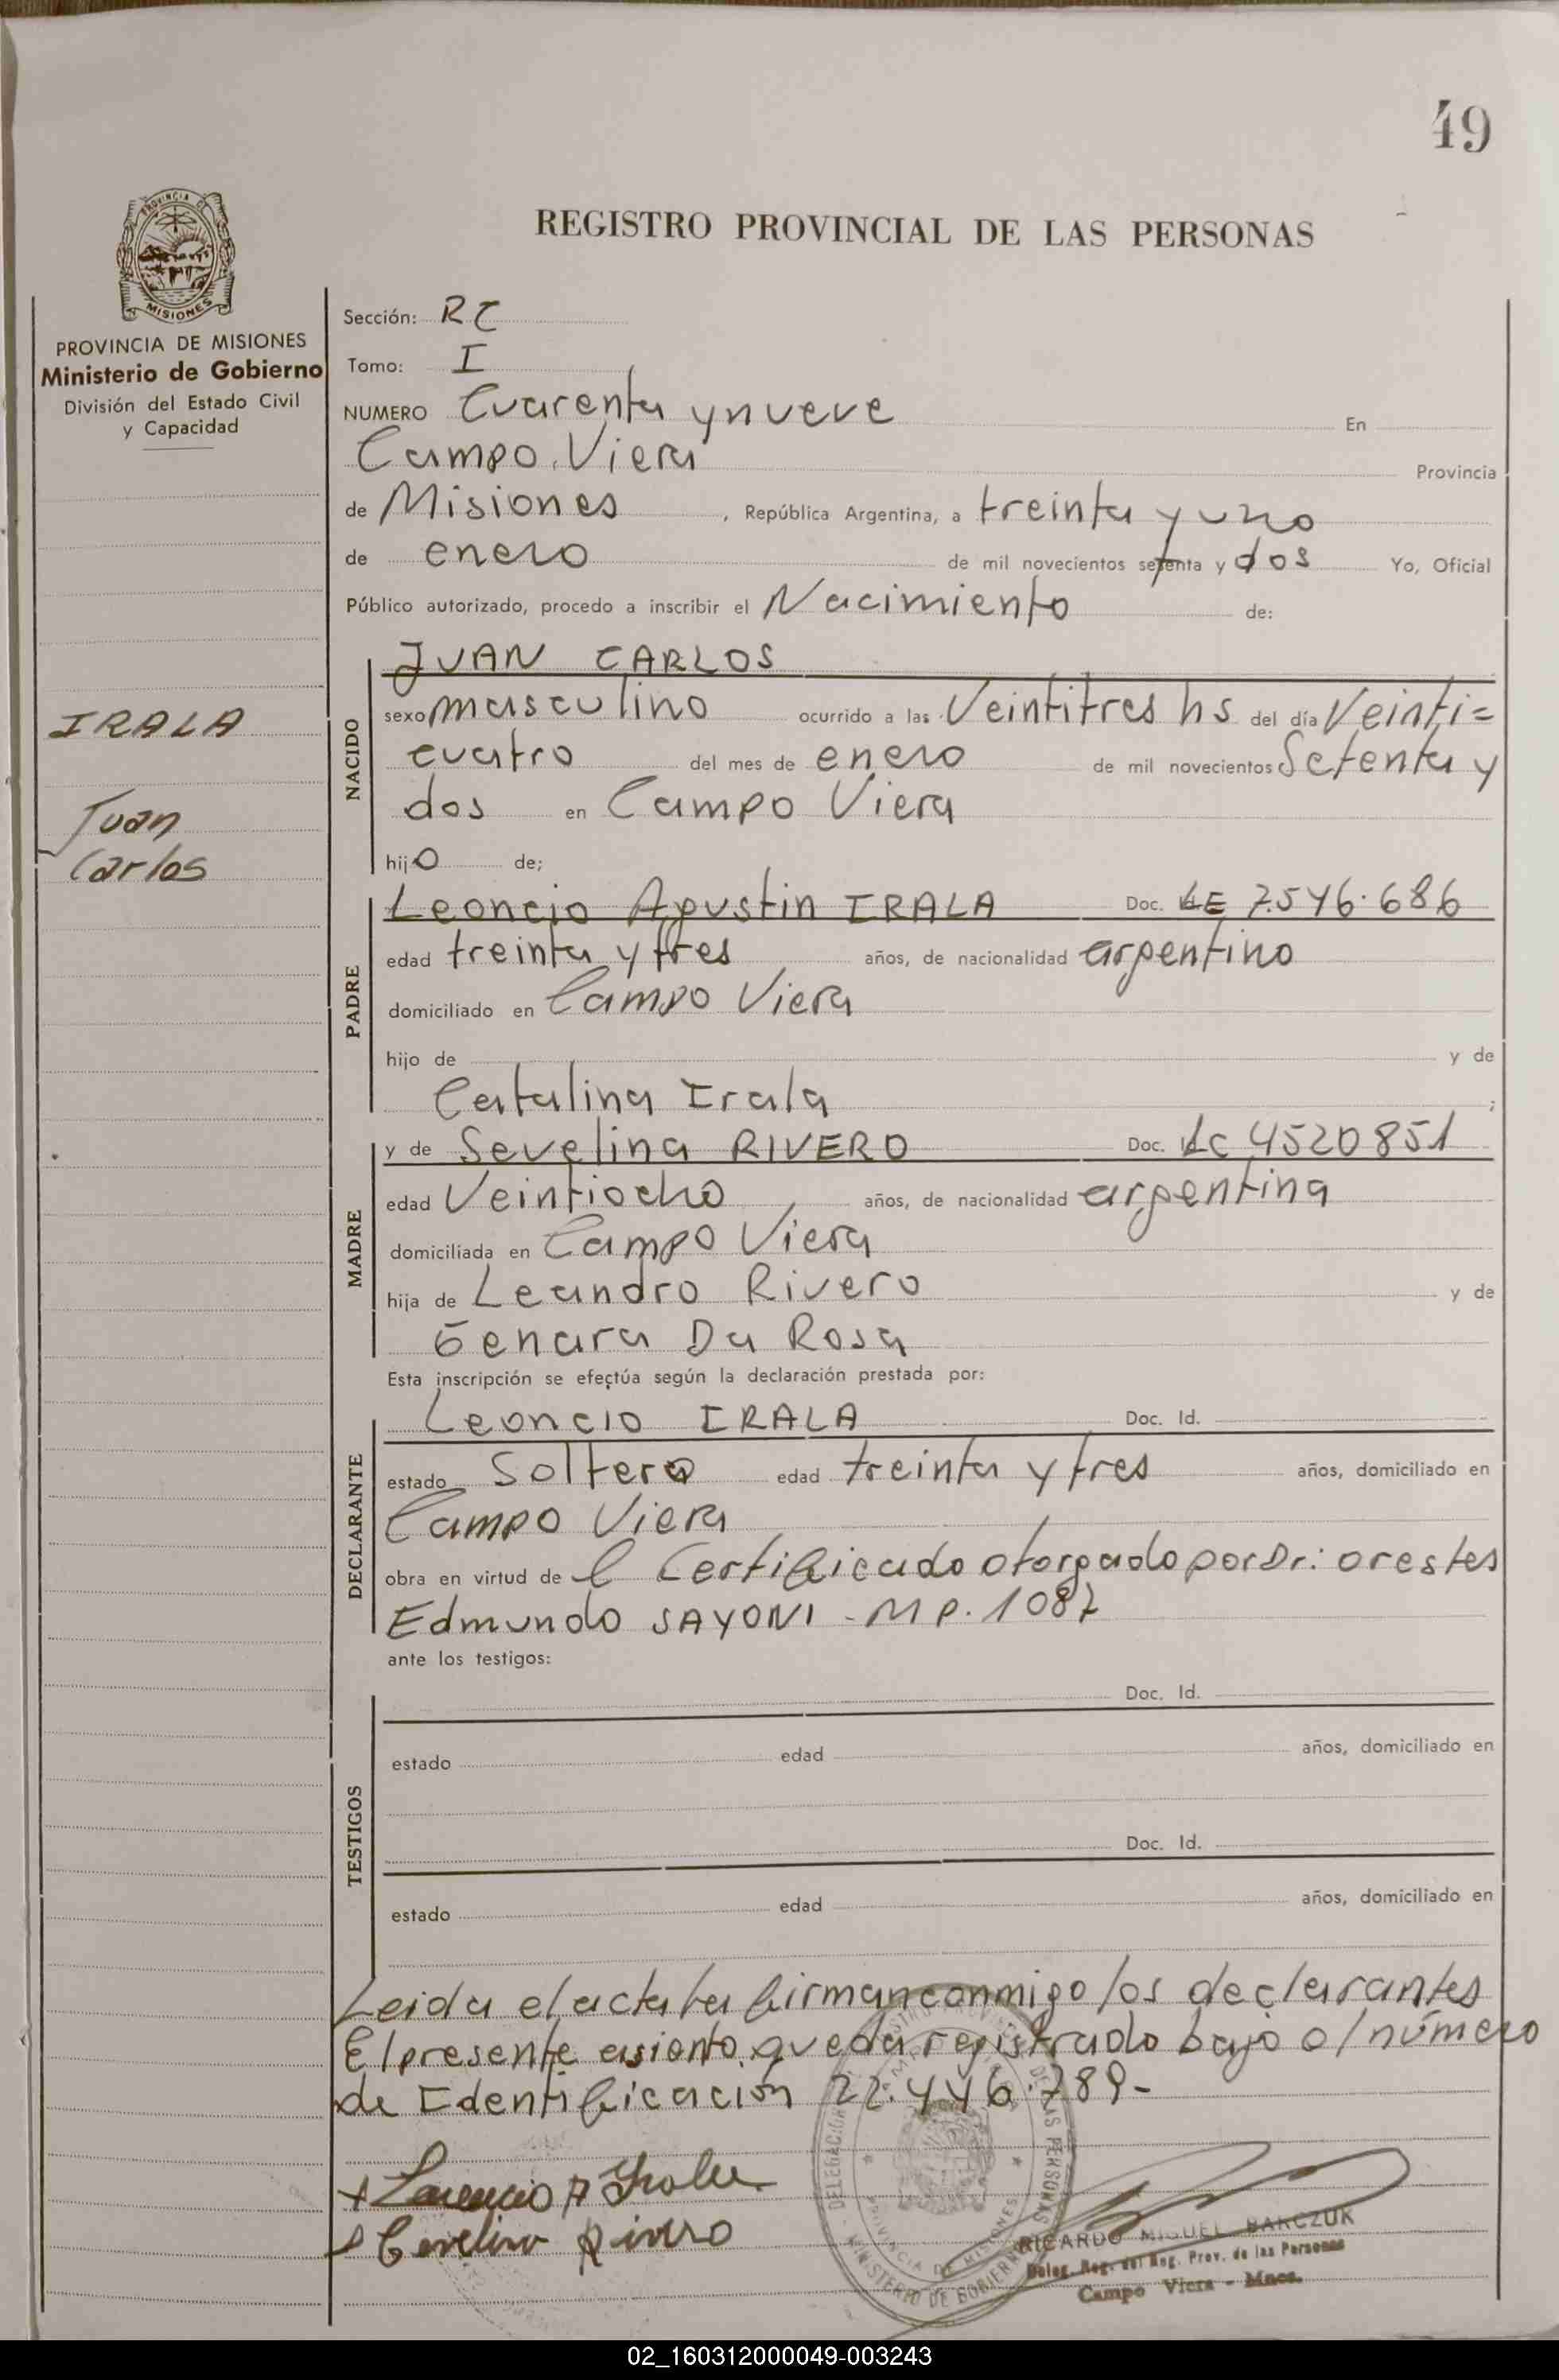 49
REGISTRO PROVINCIAL DE LAS PERSONAS
PROVINCIA DE MISIONES
Ministerio de Gobierno
División del Estado Civil
y Capacidad
IRALA
Juan
Carlos
Sección: RC
Tomo: I
NUMERO Cuarenta y nueve En
Campo Viera Provincia
de Misiones, República Argentina, a treinta y uno
de enero de mil novecientos setenta y dos Yo, Oficial
Público autorizado, procedo a inscribir el Nacimiento de:
NACIDO
JUAN CARLOS
sexo masculino ocurrido a las Veintitres hs del día Veinti=
cuatro del mes de enero de mil novecientos Setenta y
dos en Campo Viera
hijo de;
PADRE
Leoncio Agustin IRALA Doc. LE 7.546.686
edad treinta y tres años, de nacionalidad argentino
domiciliado en Campo Viera
hijo de y de
Catalina Irala ;
MADRE
y de Sevelina RIVERO Doc. LC 4520851
edad Veintiocho años, de nacionalidad argentina
domiciliada en Campo Viera
hija de Leandro Rivero y de
Genara Da Rosa
Esta inscripción se efectúa según la declaración prestada por:
DECLARANTE
Leoncio IRALA Doc. Id.
estado Soltero edad treinta y tres años, domiciliado en
Campo Viera
obra en virtud de l Certificado otorgado por Dr: orestes
Edmundo SAYONI - M P. 1087
ante los testigos:
TESTIGOS
Doc. Id.
estado edad años, domiciliado en
Doc. Id.
estado edad años, domiciliado en
Leida el acta la firman conmigo los declarantes
El presente asiento queda registrado bajo el número
de Identificación 22.446.789-
Leoncio A Irala
Cevelina Rivero
RICARDO MIGUEL BARCZUK
Deleg. Reg. del Reg. Prov. de las Personas
Campo Viera - Mnes.
02_160312000049-003243